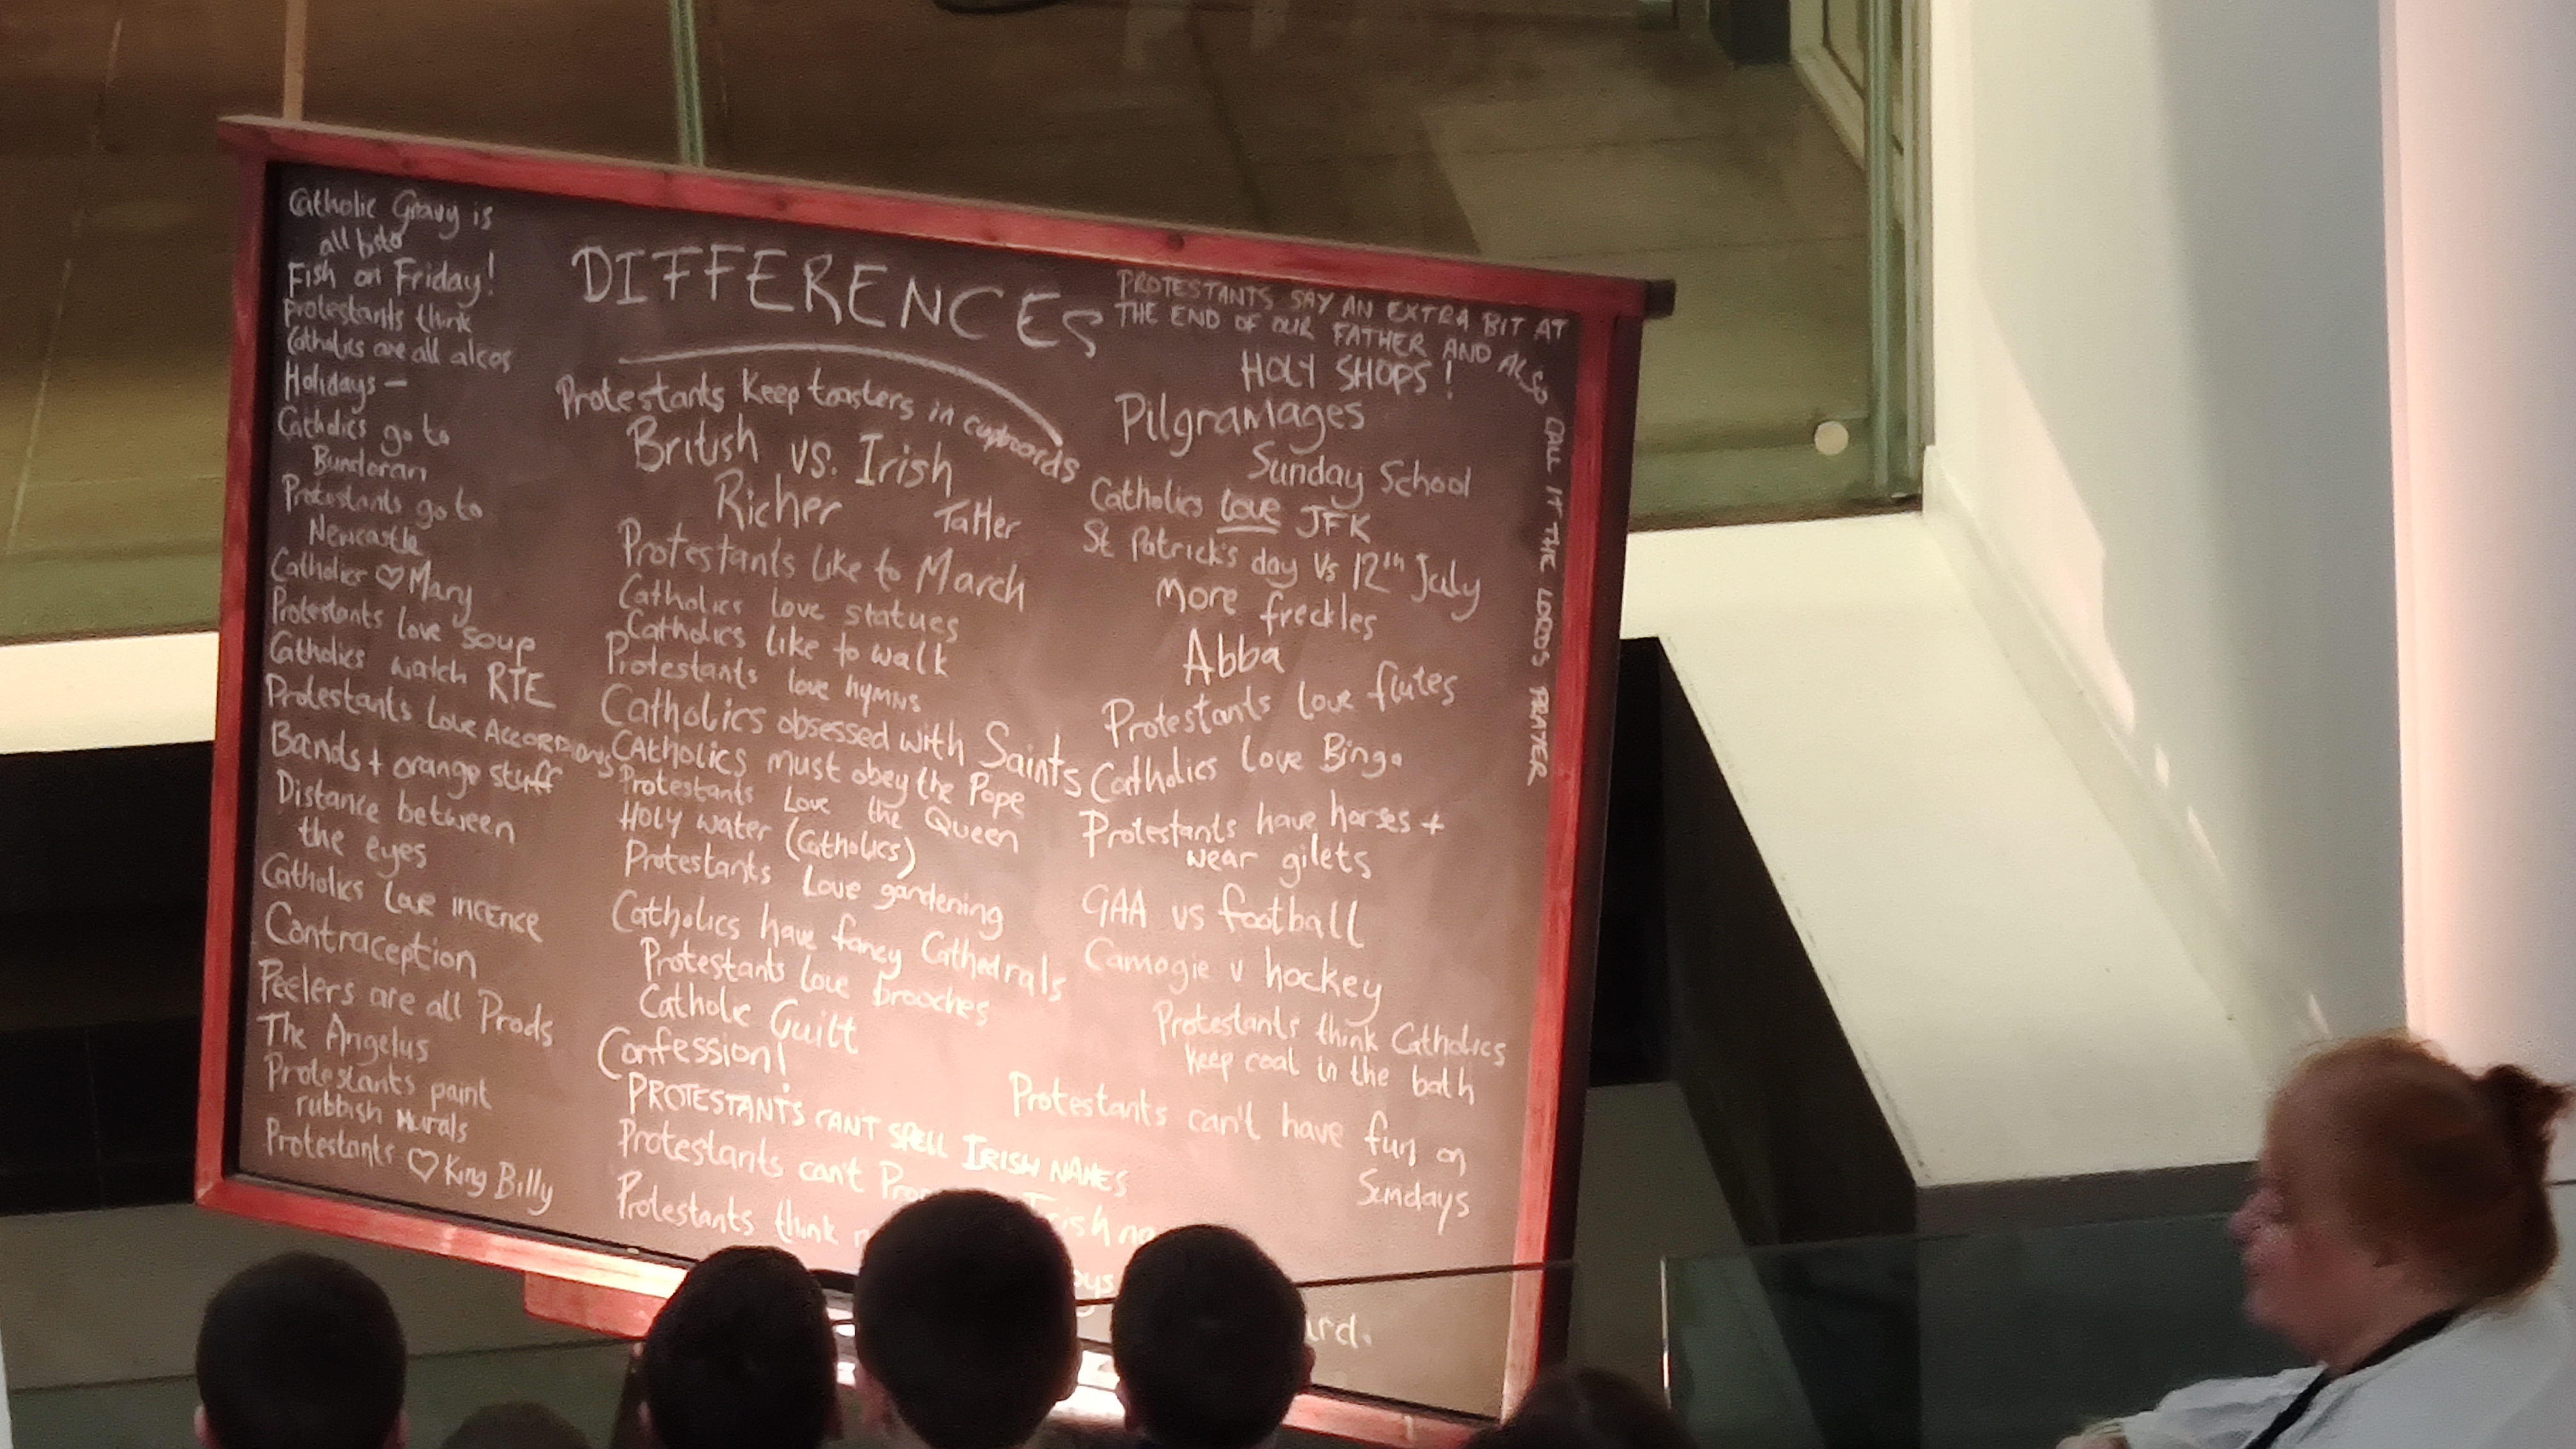 DIFFERENCES
Catholic Gravy is
all bisto
Fish on Friday!
Protestants think
Catholics are all alcos
Holidays -
Catholics go to
Bundoran
Protestants go to
Newcastle
Catholics ♡ Mary
Protestants love soup
Catholics watch RTE
Protestants Love Accordions
Bands + orange stuff
Distance between
the eyes
Catholics Love incence
Contraception
Peelers are all Prods
The Angelus
Protestants paint
rubbish murals
Protestants ♡ King Billy
Protestants keep toasters in cupboards
British vs. Irish
Richer Taller
Protestants like to March
Catholics love statues
Catholics like to walk
Protestants love hymns
Catholics obsessed with Saints
Catholics must obey the Pope
Protestants Love the Queen
Holy water (Catholics)
Protestants Love gardening
Catholics have fancy Cathedrals
Protestants love brooches
Catholic Guilt
Confession!
PROTESTANTS CAN'T SPELL IRISH NAMES
Protestants can't
Protestants think
PROTESTANTS SAY AN EXTRA BIT AT
THE END OF OUR FATHER AND ALSO
CALL IT THE LORDS PRAYER
HOLY SHOPS!
Pilgramages
Sunday School
Catholics Love JFK
St Patrick's day Vs 12th July
More freckles
Abba
Protestants love flutes
Catholics love Bingo
Protestants have horses +
wear gilets
GAA vs football
Camogie v hockey
Protestants think Catholics
keep coal in the bath
Protestants can't have fun on
Sundays